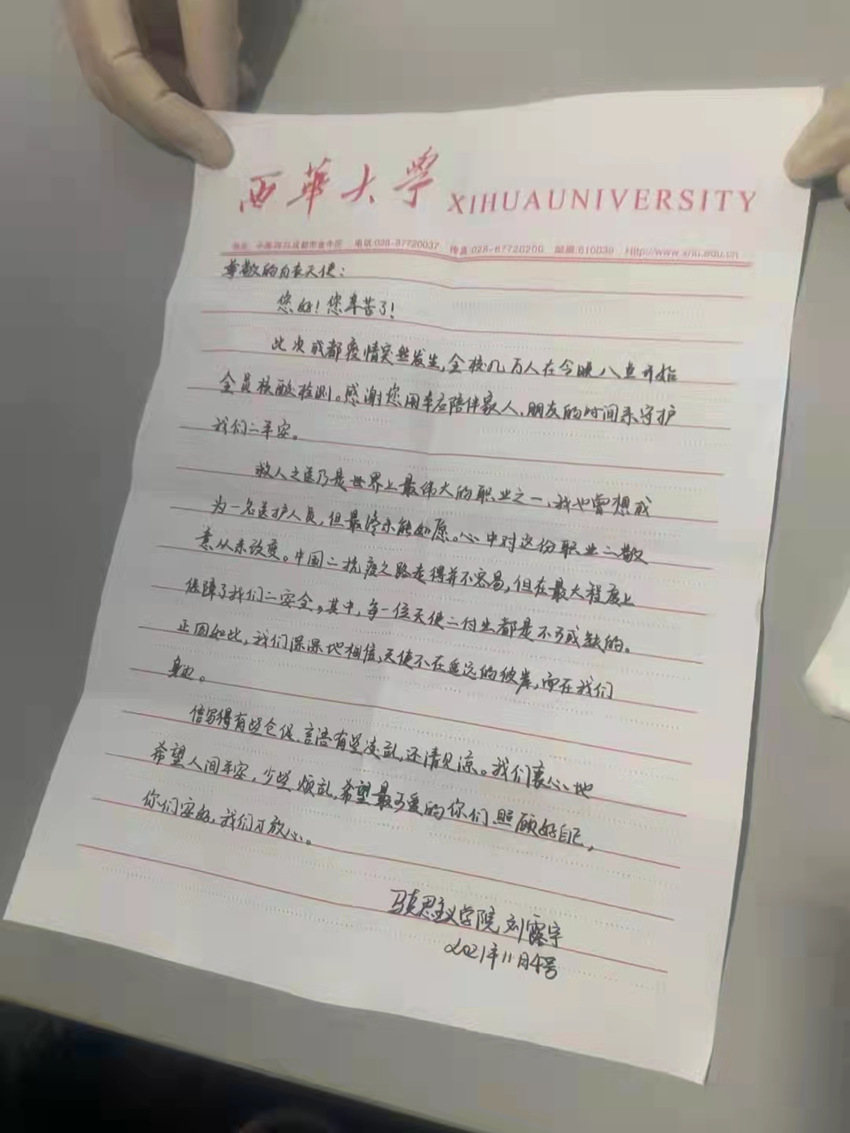 西華大学 XIHUAUNIVERSITY
地址:中国四川成都市金牛区 电话:028-87720037 传真:028-87720200 邮编:610039 Http://www.xhu.edu.cn
尊敬的白衣天使：
您好！您辛苦了！
此次成都疫情突然发生，全校几万人在今晚八点开始
全员核酸检测。感谢您用本应陪伴家人、朋友的时间来守护
我们二平安。
救人之医乃是世界上最伟大的职业之一，我也曾想成
为一名医护人员，但最终未能如愿。心中对这份职业二敬
意从未改变。中国二抗疫之路走得并不容易，但在最大程度上
保障了我们二安全。其中，每一位天使二付出都是不可或缺的。
正因如此，我们深深地相信，天使不在遥远的彼岸，而在我们
身边。
信写得有些仓促，言语有些凌乱，还请见谅。我们衷心地
希望人间平安，少些烦乱，希望最可爱的你们照顾好自己，
你们安好，我们才放心。
马克思主义学院 刘露宇
2021年11月4号